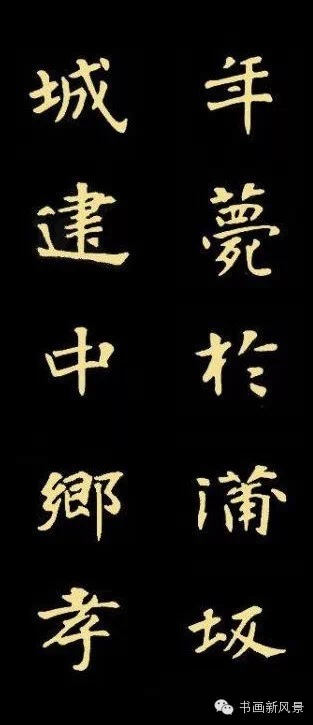 年薨於蒲坂
城建中鄉孝
书画新风景